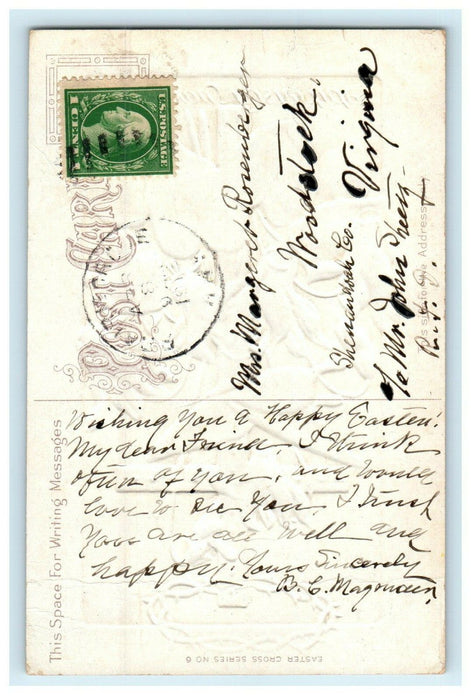 POST CARD
U.S. POSTAGE
1 CENT 1
Mrs. Margaret Rosenberger
Woodstock,
Shenandoah Co.
Virginia
c/o Mr. John
R.F.D.
This side for the Address
This Space For Writing Messages
Wishing You a Happy Easter!
My dear Friend, I think
often of You, and would
love to see You. I trust
You are all well and
happy. Yours Sincerely
B. C.
EASTER CROSS SERIES NO 6